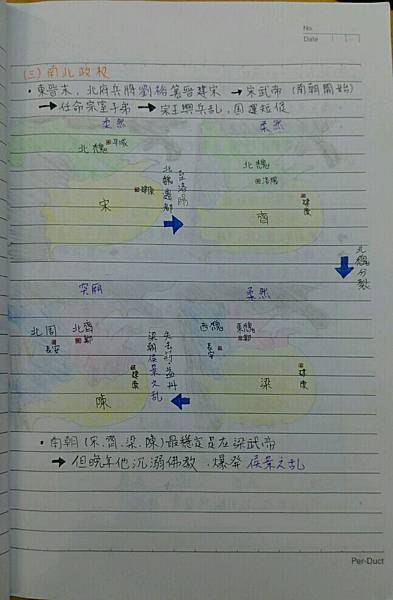 No.
Date
(三)南北政权
•東晉末，北府兵將劉裕篡晉建宋→宋武帝(南朝開始)
→任命宗室子弟→宋王興兵乱，国運短促
柔然
北魏
平城
宋
建康
北魏遷都至洛陽
柔然
北魏
洛陽
齊
建康
北魏分裂
柔然
西魏
東魏
長安
鄴
梁
建康
梁朝侯景之乱
突厥
北周
北齊
長安
鄴
建康
陳
•南朝(宋、齊、梁、陳)最穩定是在梁武帝
→但晚年他沉溺佛教，爆發侯景之乱
Per-Duct